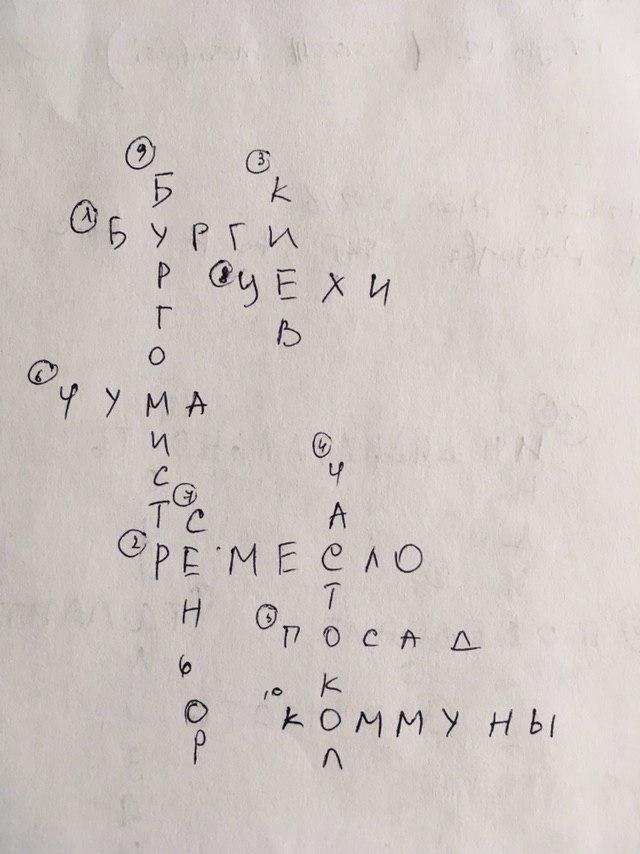 9 БУРГОМИСТР
3 КИЕВ
1 БУРГИ
8 ЦЕХИ
6 ЧУМА
4 ЧАСТОКОЛ
7 СЕНЬОР
2 РЕМЕСЛО
5 ПОСАД
10 КОММУНЫ